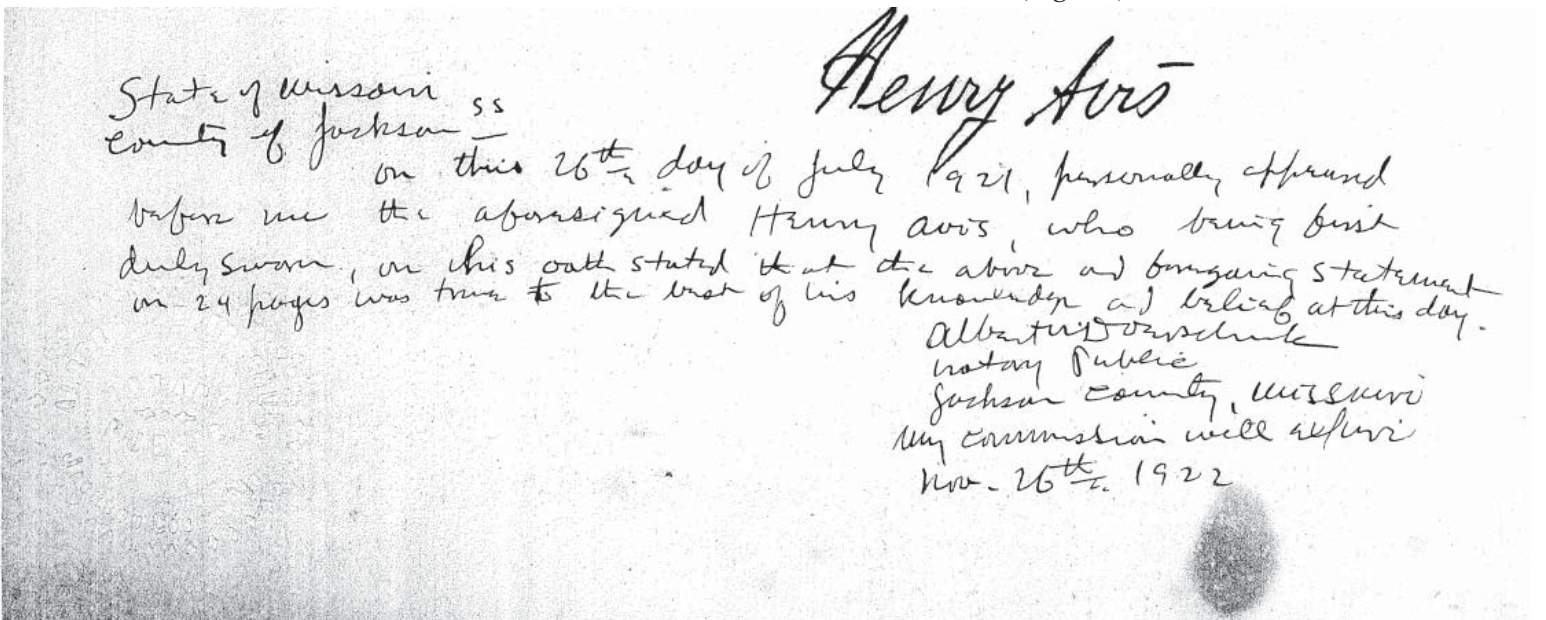 Henry Avis
State of Missouri ss
County of Jackson
on this 26th day of July 1921, personally appeared
before me the aforesigned Henry Avis, who being first
duly sworn, on his oath stated that the above and foregoing statement
on 24 pages was true to the best of his knowledge and belief at this day.
Notary Public
Jackson County, Missouri
My commission will expire
Nov. 26th 1922